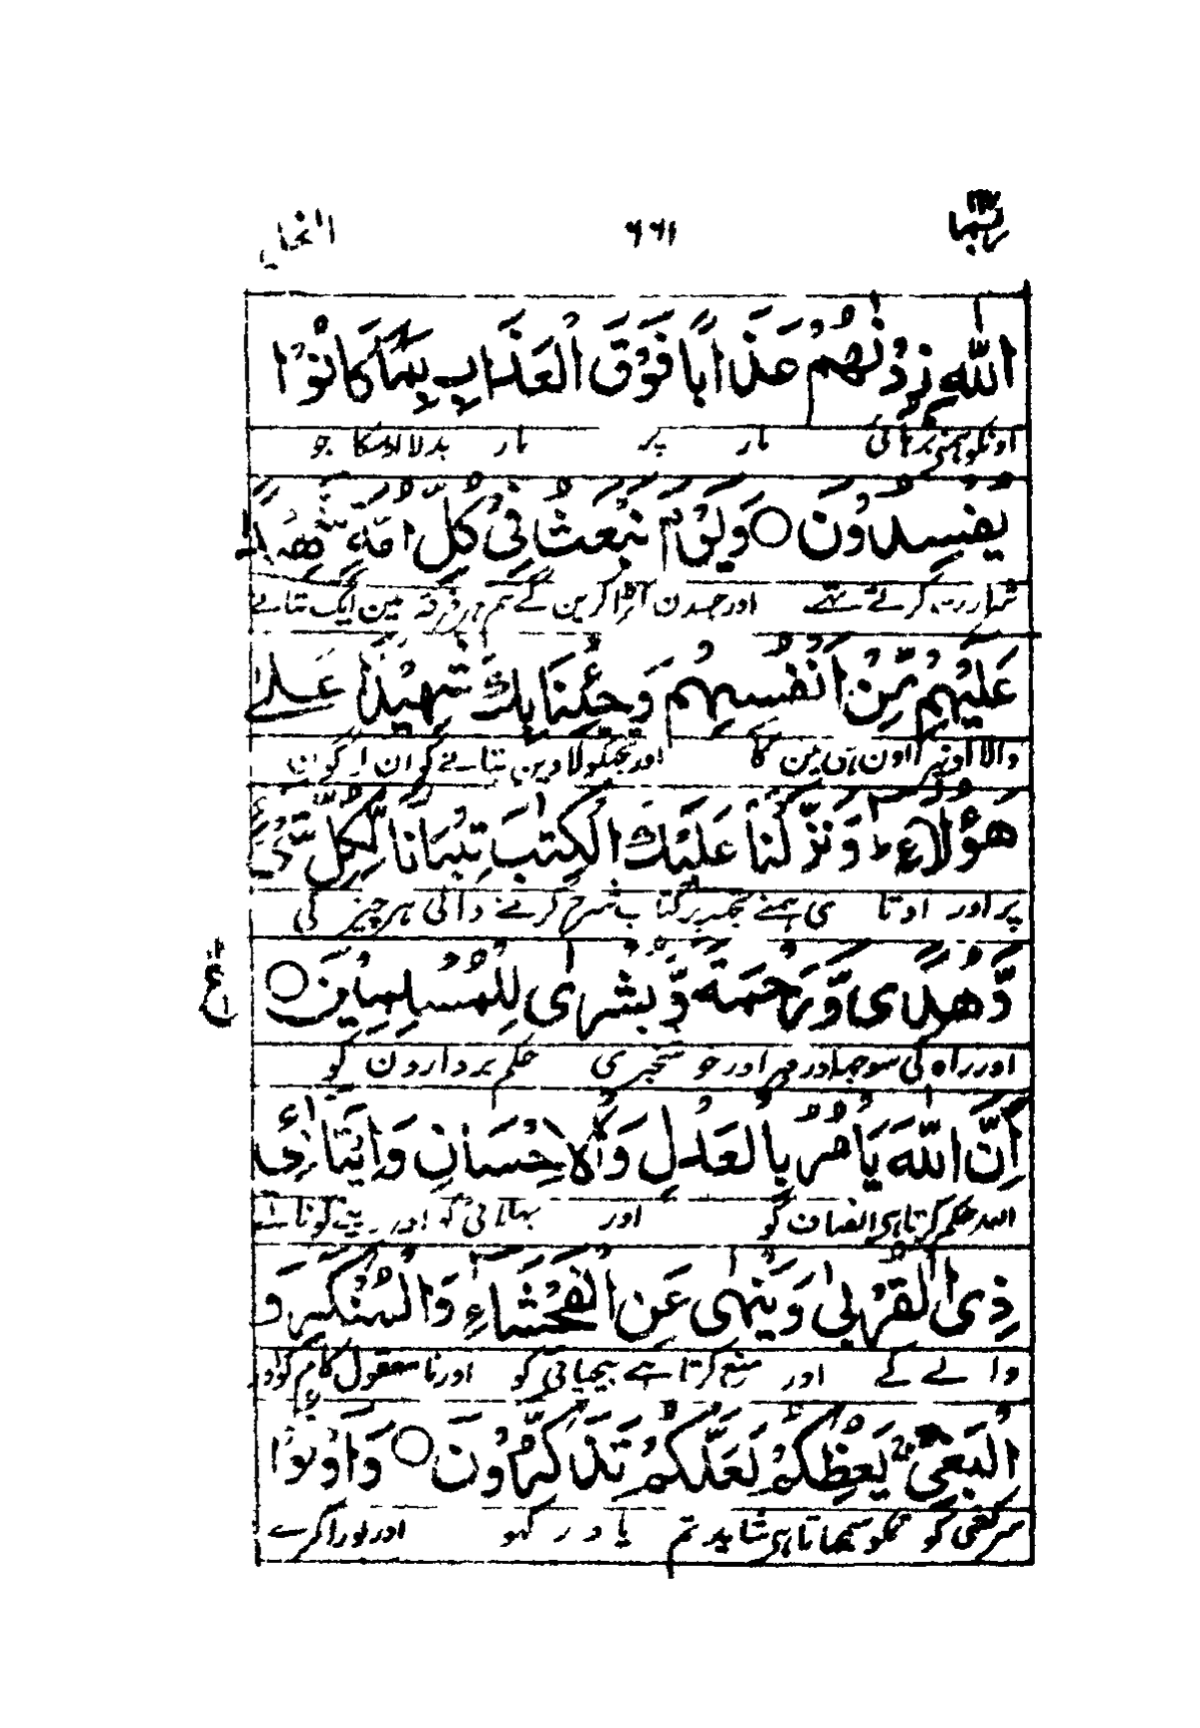 ربما ۱۴ ۶۶۱ النحل
اللّٰهِ زِدْنٰهُمْ عَذَابًا فَوْقَ الْعَذَابِ بِمَا كَانُوْا
اونکو ہمنے بڑہائی مار پر مار بدلا اوسکا جو
يُفْسِدُوْنَ ○ وَيَوْمَ نَبْعَثُ فِيْ كُلِّ اُمَّةٍ شَهِيْدًا
شرارت کرتے تہے اور جسدن کہڑا کرین گے ہم ہر فرقہ مین ایک بتانے
عَلَيْهِمْ مِّنْ اَنْفُسِهِمْ وَجِئْنَا بِكَ شَهِيْدًا عَلٰى
والا اونپر اون ہی مین کا اور تجہکو لاوین بتانے کو ان لوگون
هٰؤُلَآءِ ط وَنَزَّلْنَا عَلَيْكَ الْكِتٰبَ تِبْيَانًا لِّكُلِّ شَيْءٍ
پر اور اوتاری ہمنے تجہپر کتاب شرح کرنے والی ہر چیز کی
وَّهُدًى وَّرَحْمَةً وَّبُشْرٰى لِلْمُسْلِمِيْنَ ○
ع
اور راہ کی سوجہ اور مہر اور خوشخبری حکم بردارون کو
اِنَّ اللّٰهَ يَاْمُرُ بِالْعَدْلِ وَالْاِحْسَانِ وَاِيْتَآئِ
اللہ حکم کرتا ہی انصاف کو اور بہلائی کو اور دینے کو ناتے
ذِى الْقُرْبٰى وَيَنْهٰى عَنِ الْفَحْشَآءِ وَالْمُنْكَرِ وَ
والے کے اور منع کرتا ہے بیحیائی کو اور نامعقول کام کو اور
الْبَغْيِ يَعِظُكُمْ لَعَلَّكُمْ تَذَكَّرُوْنَ ○ وَاَوْفُوْا
سرکشی کو تمکو سمجہاتا ہی شاید تم یاد رکہو اور پورا کرے